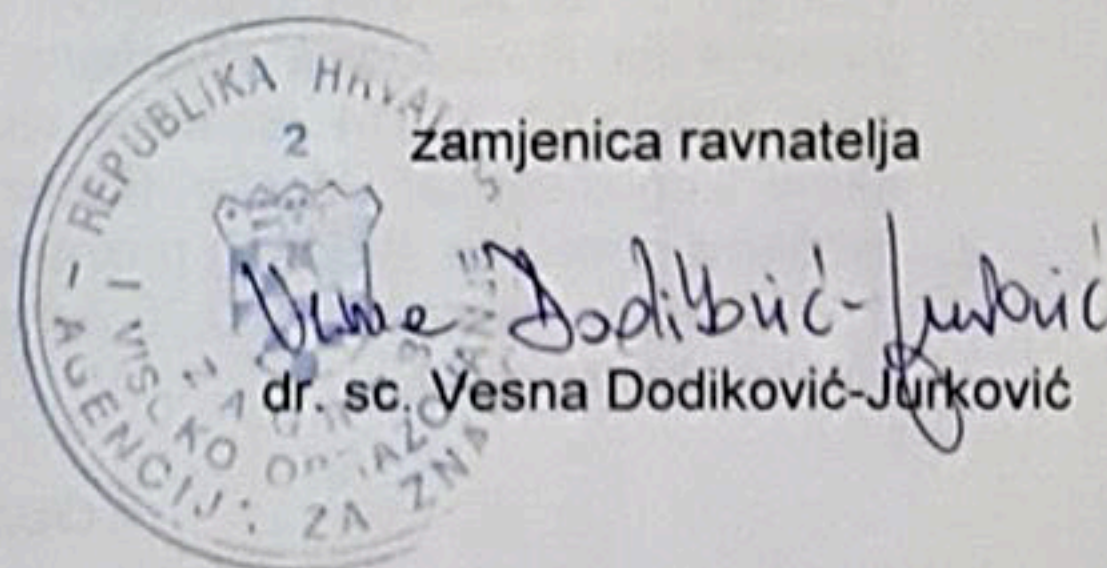 REPUBLIKA HRVAT
2
zamjenica ravnatelja
Vesna Dodiković-Jurković
dr. sc. Vesna Dodiković-Jurković
AGENCIJ ZA ZNA
I VISOKO OBRAZOVANJE
ZAGREB